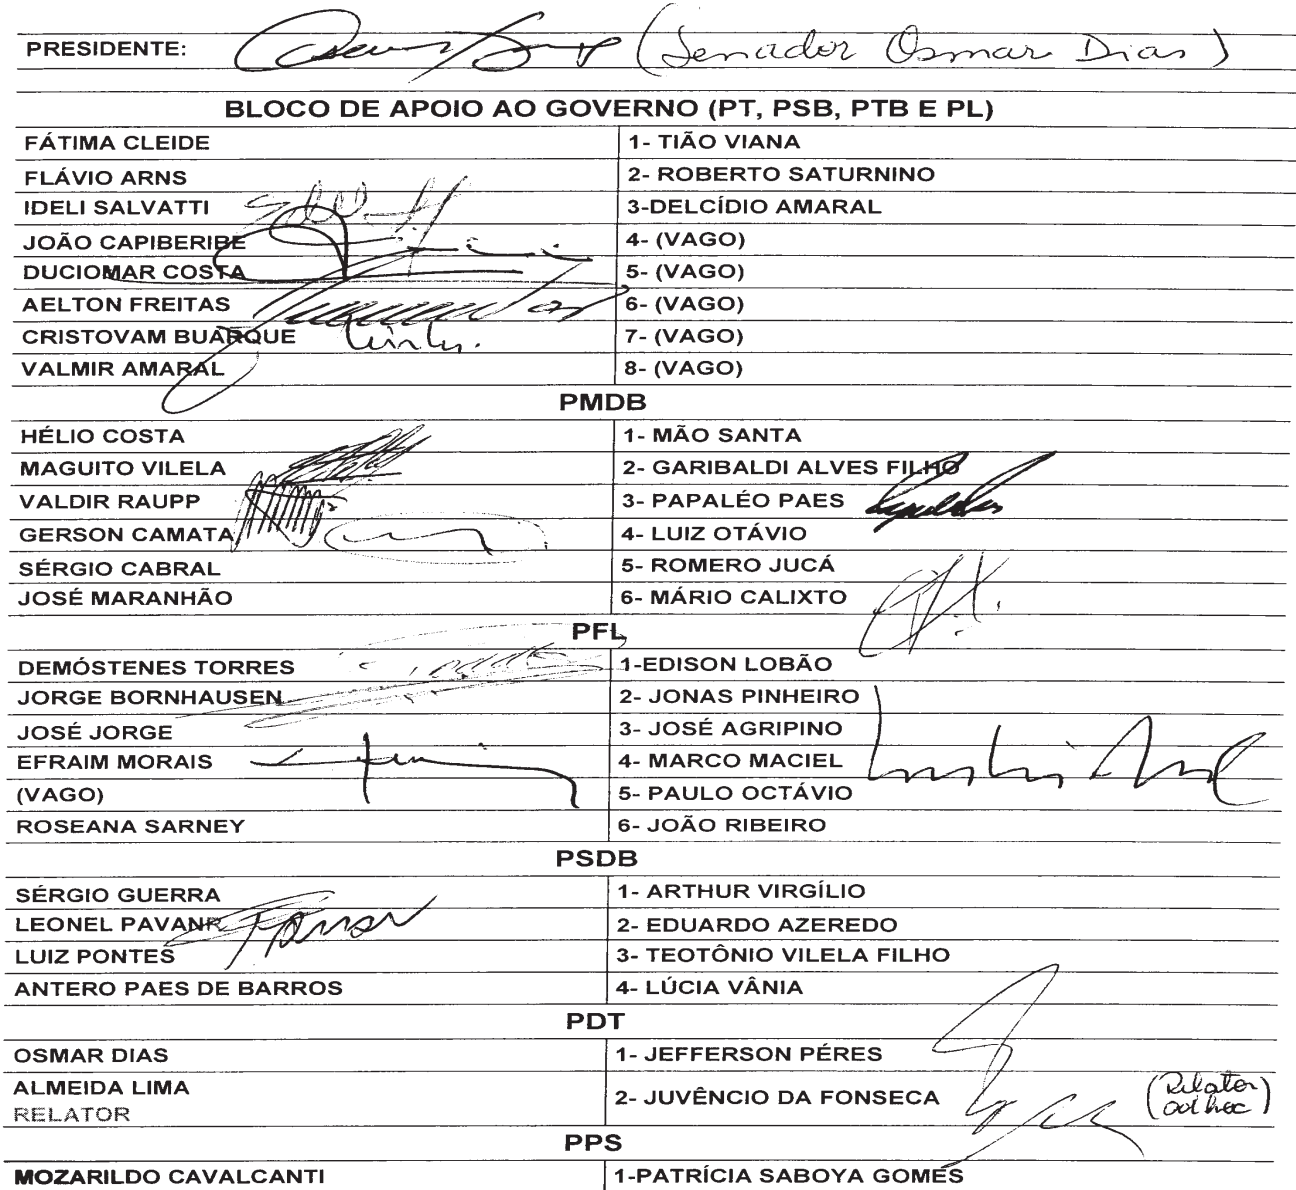 PRESIDENTE: (Senador Osmar Dias)
BLOCO DE APOIO AO GOVERNO (PT, PSB, PTB E PL)
FÁTIMA CLEIDE 1- TIÃO VIANA
FLÁVIO ARNS 2- ROBERTO SATURNINO
IDELI SALVATTI 3-DELCÍDIO AMARAL
JOÃO CAPIBERIBE 4- (VAGO)
DUCIOMAR COSTA 5- (VAGO)
AELTON FREITAS 6- (VAGO)
CRISTOVAM BUARQUE 7- (VAGO)
VALMIR AMARAL 8- (VAGO)
PMDB
HÉLIO COSTA 1- MÃO SANTA
MAGUITO VILELA 2- GARIBALDI ALVES FILHO
VALDIR RAUPP 3- PAPALÉO PAES
GERSON CAMATA 4- LUIZ OTÁVIO
SÉRGIO CABRAL 5- ROMERO JUCÁ
JOSÉ MARANHÃO 6- MÁRIO CALIXTO
PFL
DEMÓSTENES TORRES 1-EDISON LOBÃO
JORGE BORNHAUSEN 2- JONAS PINHEIRO
JOSÉ JORGE 3- JOSÉ AGRIPINO
EFRAIM MORAIS 4- MARCO MACIEL
(VAGO) 5- PAULO OCTÁVIO
ROSEANA SARNEY 6- JOÃO RIBEIRO
PSDB
SÉRGIO GUERRA 1- ARTHUR VIRGÍLIO
LEONEL PAVAN 2- EDUARDO AZEREDO
LUIZ PONTES 3- TEOTÔNIO VILELA FILHO
ANTERO PAES DE BARROS 4- LÚCIA VÂNIA
PDT
OSMAR DIAS 1- JEFFERSON PÉRES
ALMEIDA LIMA 2- JUVÊNCIO DA FONSECA (Relator ad hoc)
RELATOR
PPS
MOZARILDO CAVALCANTI 1-PATRÍCIA SABOYA GOMES